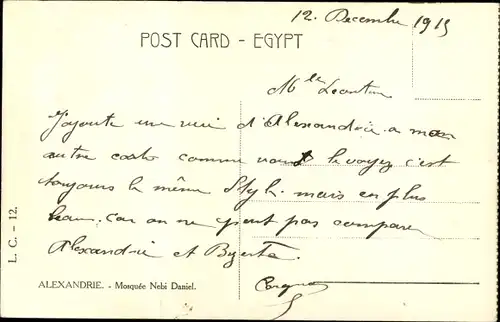 12. Decembre 1915
POST CARD - EGYPT
Mlle
J'ajoute une vue d'Alexandrie a mon
autre carte comme vous le voyez c'est
toujours le même Style. mais en plus
beau. Car on ne peut pas comparer
Alexandrie et
L. C. - 12.
ALEXANDRIE. - Mosquée Nebi Daniel.